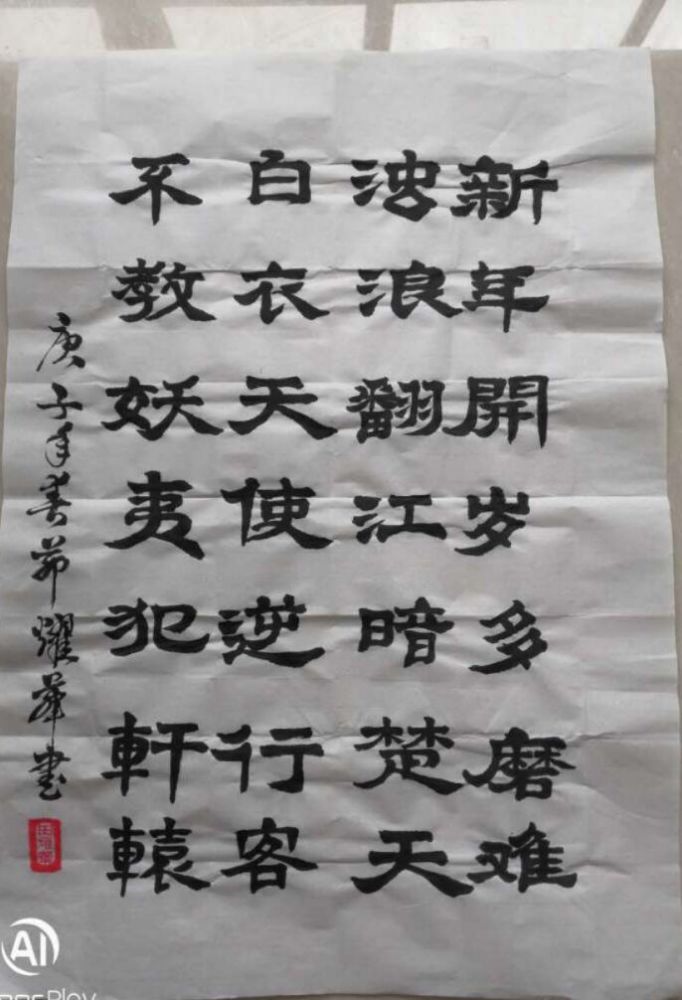 新年開岁多磨难
浪翻江暗楚天
白衣天使逆行客
不教妖夷犯軒轅
庚子年春茆耀華书
AI
Play